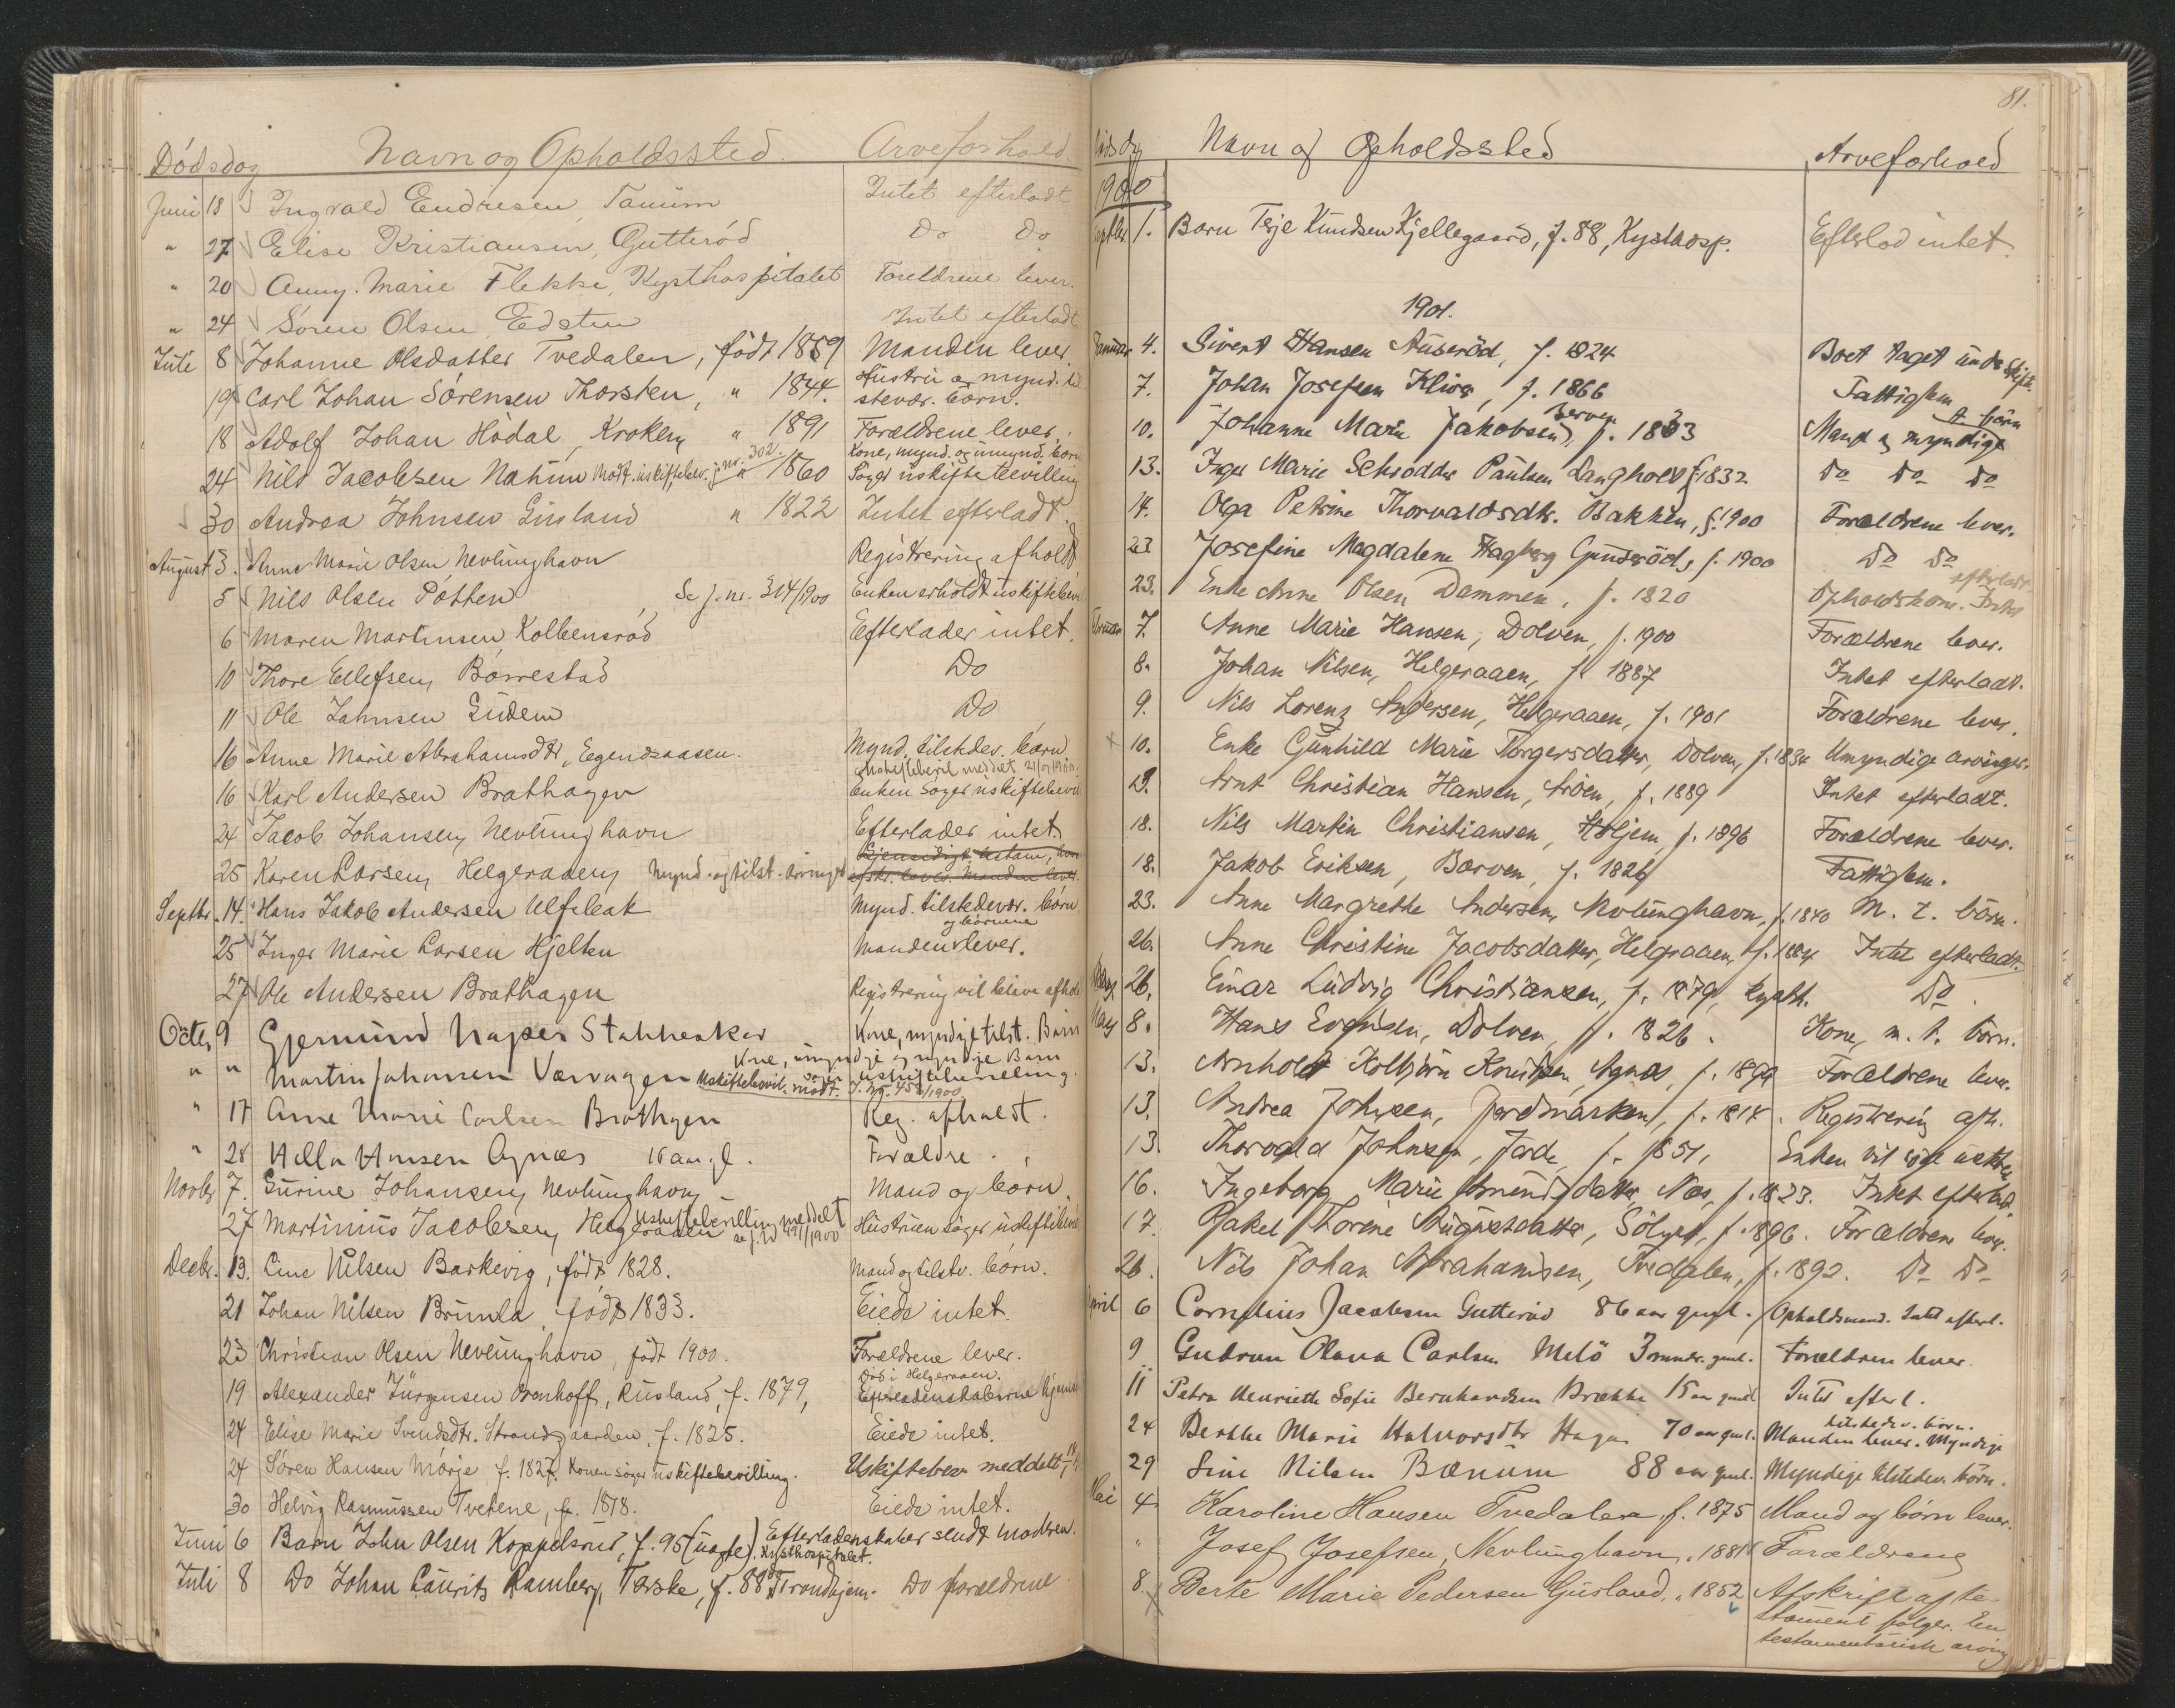 Dödsdag Navn og Opholdssted Arveforhold
Juni 18 Ingvald Endresen, Tanum Intet efterladt
" 27 Elise Kristiansen, Gutteröd Do Do
" 20 Anny Marie Flekke, Kysthospitalet Foreldrene lever.
" 24 Sören Olsen Edsten Intet efterladt
Juli 8 Johanne Olsdatter Tvedalen, födt 1859 Manden lever
19 Carl Johan Sörensen Thorsten, " 1844. Hustru og mynd. til
stevær. börn.
18 Adolf Johan Hödal, Kroken " 1891 Forældrene lever.
24 Nils Jacobsen Nalum Modt. uskiftebev. j. nr. 302. " 1860 Kone, mynd. og umynd. börn
Söger uskiftebevilling
30 Andrea Johnsen Gusland " 1822 Intet efterladt.
August 3. Anne Marie Olsen Nevlunghavn Registrering afholdt
5 Nils Olsen Potten Se j. nr. 314/1900 Enken erholdt uskiftebev.
6 Maren Martinsen Kolbensröd Efterlader intet.
10 Thore Ellefsen, Börrestad Do
11 Ole Johnsen Gudem Do
16 Anne Marie Abrahamsdtr, Eegendsaasen. Mynd. tilstedev. börn
Uskiftebevil. meddelt 21/9 1900.
16 Karl Andersen Brathagen Enken söger uskiftebevil
24 Jacob Johansen, Nevlunghavn Efterlader intet.
Gjensidigt testam,
25 Karen Larsen, Helgeraaen, Mynd. og tilst. arvinger Manden lever.
Septbr. 14. Hans Jakob Andersen Ulfsbak Mynd. tilstedevær. börn
og börnene
25 Inger Marie Larsen Hjelten Manden lever.
27 Ole Andersen Brathagen Registrering vil blive afhol
Octbr. 9 Gjermund Kone, myndige tilst. Börn
Kone, umyndige og myndige Barn
" " Martin Johansen Værvagen Uskiftebevil. modt. J. No. 452/1900 uskiftebevilling.
" 17 Anne Marie Carlsen Brathagen Reg. afholdt.
" 28 Hilla Hansen Agnæs 16 aar gl. Forældre.
Novbr. 7. Gurine Johansen, Nevlunghavn, Mand og börn.
Uskiftebevilling meddelt
27 Martinius Jacobsen, Helgeraaen se j. no 491/1900 Hustruen söger uskiftebevil
Decbr. 13. Line Nilsen Barkevig, födt 1828. Mand og tilstv. börn.
21 Johan Nilsen Brunla, födt 1833. Eiede intet.
23 Christian Olsen Nevlunghavn, födt 1900. Forældrene lever.
Död i Helgeraaen.
19 Alexander Jürgensen Oronhoff, Rusland, f. 1879, Efterladenskaberne hjem
24 Elise Marie Svendsdtr. Strandgaarden, f. 1825. Eiede intet.
24 Sören Hansen Mörje f. 1827. Konen söger uskiftebevilling. Uskiftebev meddelt
30 Helvig Rasmussen Tvetene, f. 1818. Eiede intet.
Juni 6 Barn John Olsen Koppelsrud, f. 95 (uægte) Kysthospitalet. Efterladenskaber sendt moderen.
Juli 8 Do Johan Laurits Ramberg, Terske, f. 88 Do Trondhjem. Do forældrene
81.
Dödsdag Navn og Opholdssted Arveforhold
1900
Septbr. 1. Barn Terje Knudsen Kjellegaard, f. 88, Kysthosp. Efterlod intet.
1901.
Januar 4. Sivert Hansen Auseröd, f. 1824 Boet taget under skifte.
7. Johan Josefsen Kliva, f. 1866 Fattiglem
10. Johanne Marie Jakobsen, Berven f. 1833 Mand og myndige t. börn
13. Inger Marie Schrödder Paulsen Langholt f. 1832 Do Do Do
14. Olga Petrine Thorvaldsdtr. Bakken, f. 1900 Forældrene lever.
23 Josefine Magdalene Hagberg Gunderöd, f. 1900 Do Do
23. Enke Anne Olsen Dammen, f. 1820 Opholdskone. Intet efterladt
Februar 7. Anne Marie Hansen, Dolven, f. 1900 Forældrene lever.
8. Johan Nilsen, Helgeraaen, f. 1887 Intet efterladt.
9. Nils Lorenz Andersen, Helgeraaen, f. 1901 Forældrene lever.
x 10. Enke Gunhild Marie Torgersdatter, Dolven, f. 1834 Umyndige arvinger.
13. Arnt Christian Hansen, Aröen, f. 1889 Intet efterladt.
18. Nils Martin Christiansen, Holjem, f. 1896 Forældrene lever.
18. Jakob Eriksen, Barven, f. 1826 Fattiglem.
23. Anne Margrethe Andersen, Nevlunghavn, f. 1840 M. t. börn.
26. Anne Christine Jacobsdatter, Helgeraaen, f. 1884 Intet efterladt.
26. Einar Ludvig Christiansen, f. 1879, kysth. Do.
Marts 8. Hans Evensen, Dolven, f. 1826. Kone, m. t. börn.
13. Arnholdt Kolbjörn Knudsen, Agnæs, f. 1899 Forældrene lever.
13. Andrea Johnsen, Jordmarken, f. 1814. Registrering afh.
13. Thorvald Johnsen, Jorde, f. 1851, Enken vil söge uskifte
16. Ingeborg Marie Amundsdatter, Næs, f. 1823. Intet efterlat.
17. Rakel Thorine Augustdatter, Sölyst, f. 1896. Forældrene lever.
26. Nils Johan Abrahamsen, Tvedalen, f. 1892. Do Do
April 6 Cornelius Jacobsen Gutteröd 86 aar gml. Opholdsmand. Intet efterl.
9 Gudrun Olava Carlsen Melö 3 mndr. gml. Forældrene lever.
11 Petra Henriette Sofie Bernhardsen Brække 15 aar gml. Intet efterl.
tilstedev. börn.
24 Berthe Marie Halvorsdtr Hagen 70 aar gml. Manden lever. Myndige
29 Sine Nilsen Bænum 88 aar gml. Myndige tilstedev. börn.
Mai 4 Karoline Hansen Tvedalen f. 1875 Mand og börn lever.
" Josef Josefsen, Nevlunghavn, " 1881 Forældrene
8. x Berte Marie Pedersen Gusland, " 1852 Afskrift af te-
stament følger. En
testamentarisk arving